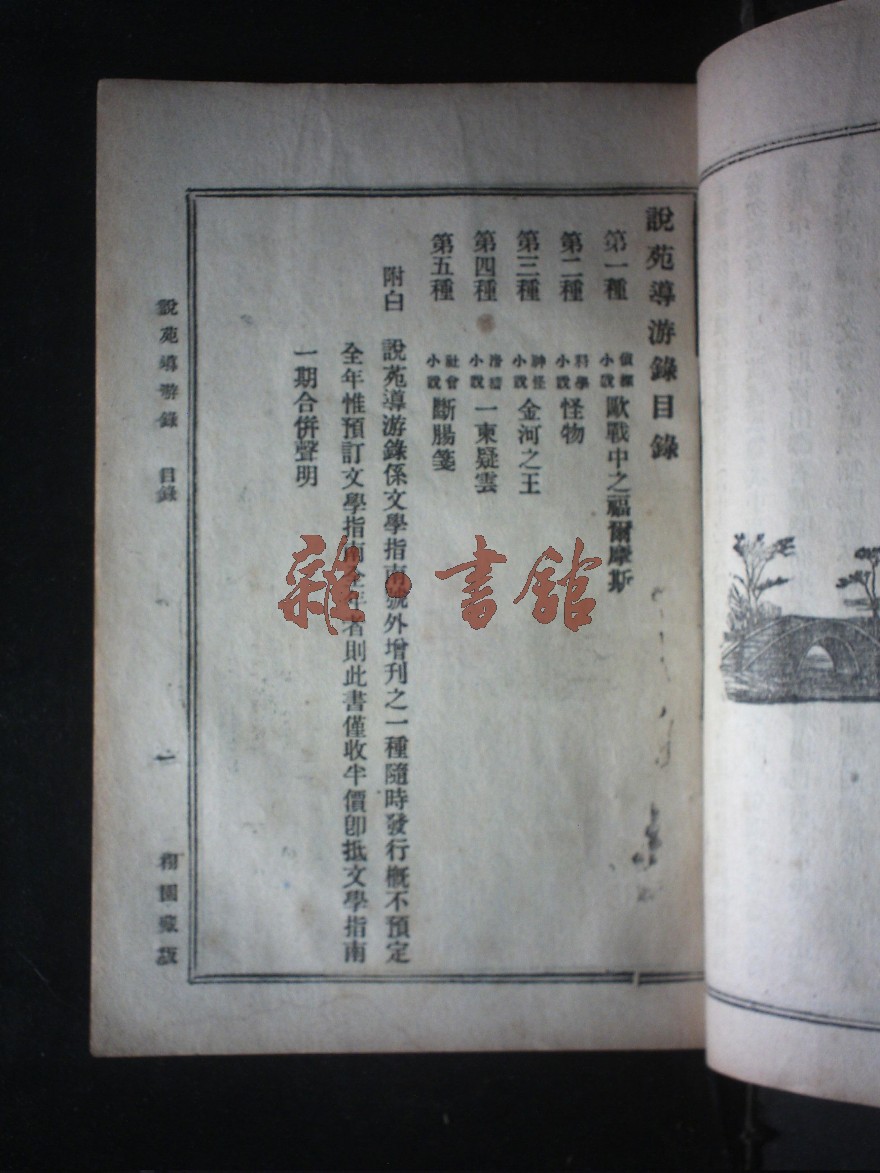 說苑導游錄目錄
第一種 偵探小說 歐戰中之福爾摩斯
第二種 科學小說 怪物
第三種 神怪小說 金河之王
第四種 滑稽小說 一束疑雲
第五種 社會小說 斷腸箋
附白 說苑導游錄係文學指南號外增刊之一種隨時發行概不預定
全年惟預訂文學指南全年者則此書僅收半價即抵文學指南
一期合併聲明
說苑導游錄 目錄 一 栩園藏版
雜·書館